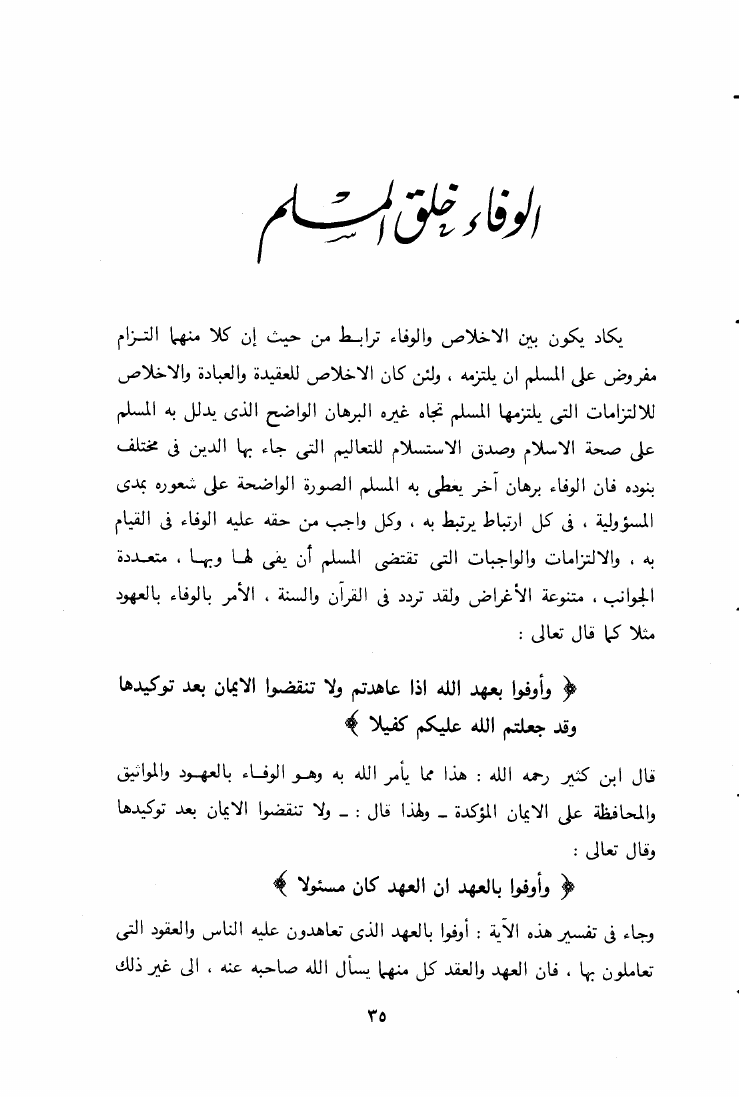 الوفاء خلق المسلم
يكاد يكون بين الاخلاص والوفاء ترابط من حيث إن كلا منهما التزام
مفروض على المسلم ان يلتزمه ، ولئن كان الاخلاص للعقيدة والعبادة والاخلاص
للالتزامات التى يلتزمها المسلم تجاه غيره البرهان الواضح الذى يدلل به المسلم
على صحة الاسلام وصدق الاستسلام للتعاليم التى جاء بها الدين فى مختلف
بنوده فان الوفاء برهان آخر يعطى به المسلم الصورة الواضحة على شعوره بمدى
المسؤولية ، فى كل ارتباط يرتبط به ، وكل واجب من حقه عليه الوفاء فى القيام
به ، والالتزامات والواجبات التى تقتضى المسلم أن يفى لها وبها ، متعددة
الجوانب ، متنوعة الأغراض ولقد تردد فى القرآن والسنة ، الأمر بالوفاء بالعهود
مثلا كما قال تعالى :
﴿ وأوفوا بعهد الله اذا عاهدتم ولا تنقضوا الايمان بعد توكيدها
وقد جعلتم الله عليكم كفيلا ﴾
قال ابن كثير رحمه الله : هذا مما يأمر الله به وهو الوفاء بالعهود والمواثيق
والمحافظة على الايمان المؤكدة ـ ولهذا قال : ـ ولا تنقضوا الايمان بعد توكيدها
وقال تعالى :
﴿ وأوفوا بالعهد ان العهد كان مسئولا ﴾
وجاء فى تفسير هذه الآية : أوفوا بالعهد الذى تعاهدون عليه الناس والعقود التى
تعاملون بها ، فان العهد والعقد كل منهما يسأل الله صاحبه عنه ، الى غير ذلك
٣٥